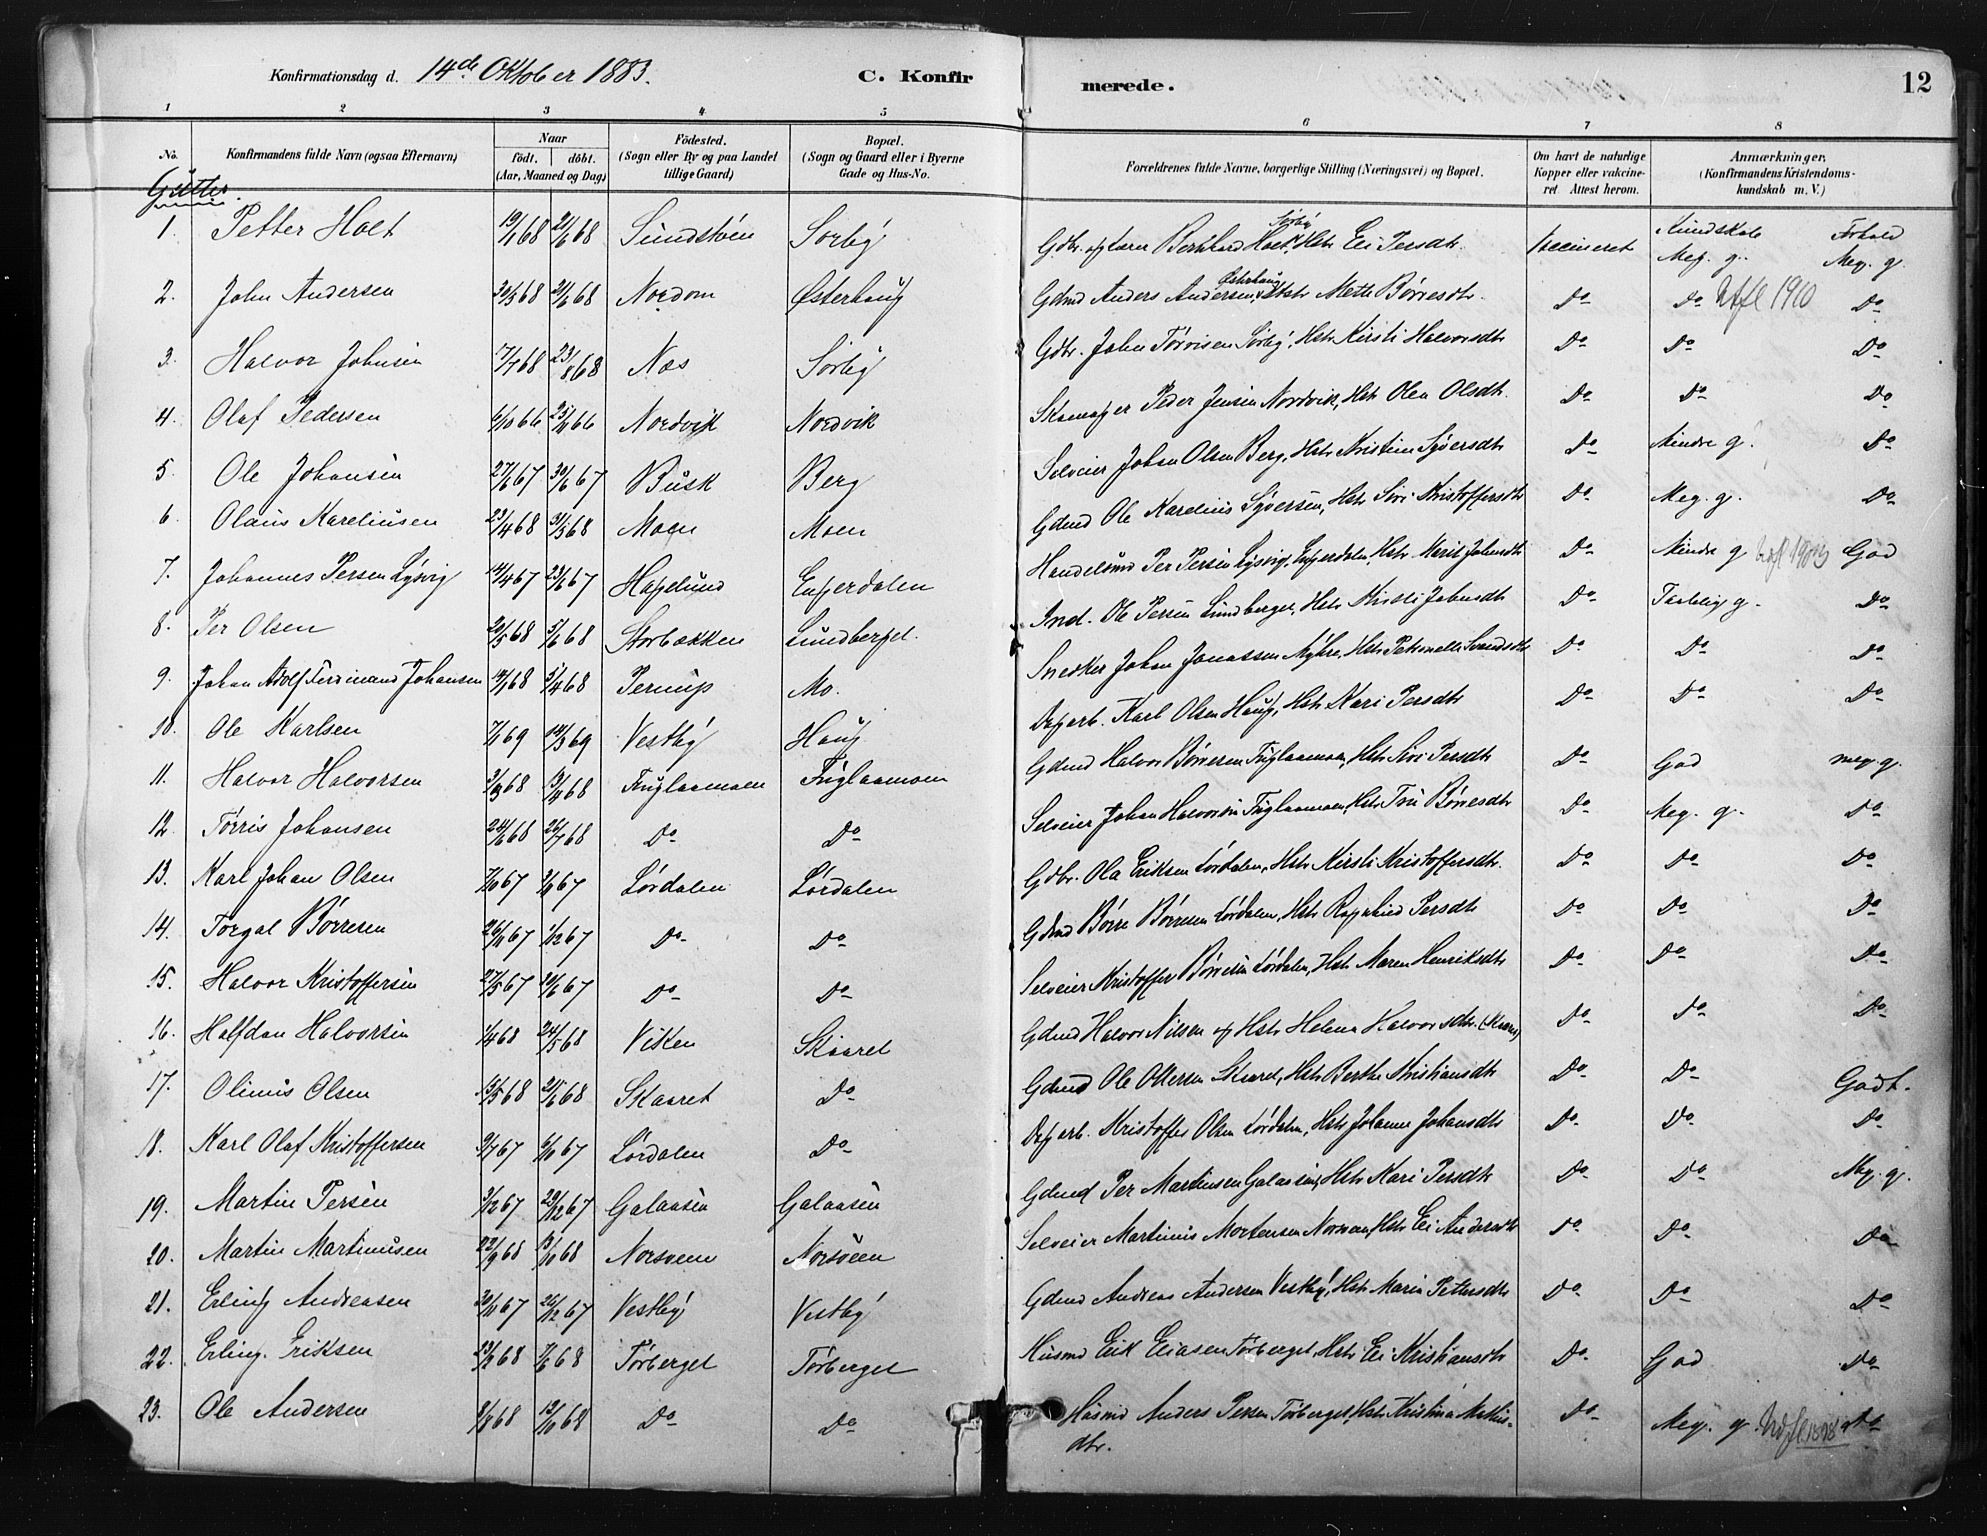 Konfirmationsdag d. 14de Oktober 1883. C. Konfirmerede. 12
1 2 3 4 5 6 7 8
No. Konfirmandens fulde Navn (ogsaa Efternavn) Naar födt. döbt. (Aar, Maaned og Dag) Födested. (Sogn eller By og paa Landet tillige Gaard) Bopæl. (Sogn og Gaard eller i Byerne Gade og Hus-No. Forældrenes fulde Navne, borgerlige Stilling (Næringsvei) og Bopæl. Om havt de naturlige Kopper eller vakcineret Attest herom. Anmærkninger, (Konfirmandens Kristendomskundskab m. V.)
Gutter.
1. Petter Holt 19/1 68 21/6 68 Sundstöen Sorby Gdbr. Bernhard Holt, Sörby Hstr Eli Persdtr. Vaccineret Kundskab Meg. g. Forhold Meg. g.
2. John Andersen 30/5 68 21/6 68 Nordom Østerhaug Gdmd Anders Andersen Østerhaug, Hstr Mette Börresdtr. Do Do Utfl 1910 Do
3. Halvor Johnsen 17/7 68 23/8 68 Nes Sörby Gdbr. John Törrisen Sörby, Hstr Kirsti Halvorsdtr Do Do Do
4. Olaf Pedersen 6/10 66 25/11 66 Nordvik Nordvik Skomager Peder Jensen Nordvik, Hstr Olea Olsdtr. Do Do Do
5. Ole Johansen 27/6 67 30/6 67 Busk Berg Selveier Johan Olsen Berg, Hstr Kristine Syversdtr Do Mindre g. Do
6. Olaus Kareliusen 23/4 68 31/5 68 Moen Moen Gdmd Ole Karelius Syversen, Hstr Siri Kristoffersdtr Do Meg. g. Do
7. Johannes Persen Lysvig 14/4 67 23/6 67 Hagelund Engerdalen Handelsmd Per Persen Lysvig, Engerdalen, Hstr Marit Johnsdtr Do Mindre g Utfl 1903 God
8. Per Olsen 20/5 68 5/6 68 Storbækken Lundberget. Ind. Ole Persen Lundberget, Hstr Kristi Johnsdtr Do Taalelig g. Do
9. Johan Adolf Ferdinand Johansen 14/1 68 5/4 68 Perrup Mo. Snedker Johan Jonassen Myhre, Hstr Petronelle Svendsdtr Do Do Do
10. Ole Karlsen 7/1 69 14/3 69 Vestby Haug Dagarb. Karl Olsen Haug, Hstr Kari Persdtr Do Do Do
11. Halvor Halvorsen 3/3 68 13/4 68 Fuglaamoen Fuglaamoen Gdmd Halvor Börresen Fuglaamoen, Hstr Siri Persdtr Do God meg. g.
12. Törris Johansen 24/6 68 26/7 68 Do Do Selveier Johan Halvorsen Fuglaamoen, Hstr Tru Börresdtr Do Meg. g. Do
13. Karl Johan Olsen 7/10 67 67 Lördalen Lördalen Gdbr. Ola Eriksen Lördalen, Hstr Kirsti Kristoffersdtr. Do Do Do
14. Torgal Börresen 26/11 67 1/12 67 Do Do Gdmd Börre Börresen Lördalen, Hstr Ragnhild Persdtr Do Do Do
15. Halvor Kristoffersen 27/5 67 20/6 67 Do Do Selveier Kristoffer Börresen Lördalen, Hstr Maren Henriksdtr Do Do Do
16. Halfdan Halvorsen 1/4 68 24/5 68 Viken Skaaret Gdmd Halvor Nilsen og Hstr Helene Halvorsdtr. Do Do Do
17. Olinus Olsen 15/5 68 21/6 68 Skaaret Do Gdmd Ole Ottersen Skaaret, Hstr Berthe Kristiansdtr Do Do Godt.
18. Karl Olaf Kristoffersen 9/7 67 6/10 67 Lördalen Do Dagarb. Kristoffer Olsen Lördalen, Hstr Johanne Johansdtr Do Do Do
19. Martin Persen 3/12 67 29/12 67 Galaasen Galaasen Gdmd Per Martinsen Galaasen, Hstr Kari Persdtr Do Do Meg. g.
20. Martin Martinusen 22/9 68 18/10 68 Norsveen Norsveen Selveier Martinus Mortensen, Hstr Eli Andersdtr Do Do Do
21. Erling Andreasen 30/11 67 26/12 67 Vestby Vestby Gdmd Andreas Andersen Vestby, Hstr Maria Pettersdtr Do Do Do
22. Erling Eriksen 23/2 68 7/6 68 Törberget Törberget Husmd Erik Eliasen Törberget, Hstr Eli Kristiansdtr Do God Do
23. Ole Andersen 8/8 68 13/10 68 Do Do Husmd Anders Persen Törberget, Hstr Kristine Mathisdtr. Do Meg. g Udfl 1898 Do